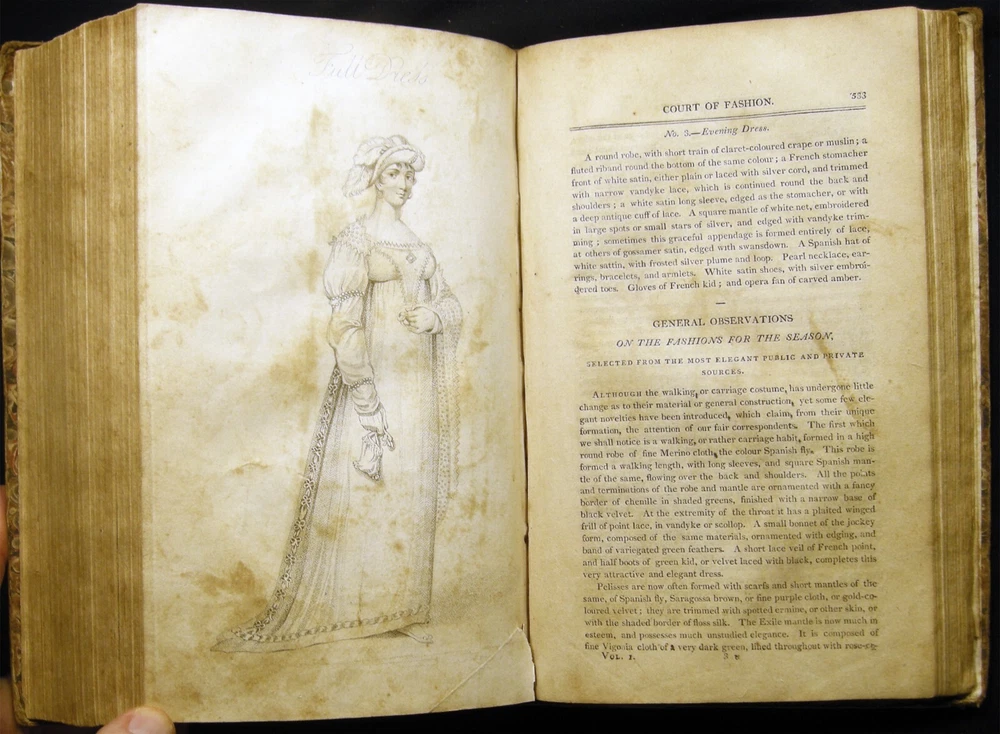 Full Dress
COURT OF FASHION. 533
No. 3.—Evening Dress.
A round robe, with short train of claret-coloured crape or muslin; a
fluted riband round the bottom of the same colour; a French stomacher
front of white satin, either plain or laced with silver cord, and trimmed
with narrow vandyke lace, which is continued round the back and
shoulders; a white satin long sleeve, edged as the stomacher, or with
a deep antique cuff of lace. A square mantle of white net, embroidered
in large spots or small stars of silver, and edged with vandyke trim-
ming; sometimes this graceful appendage is formed entirely of lace,
at others of gossamer satin, edged with swansdown. A Spanish hat of
white sattin, with frosted silver plume and loop. Pearl necklace, ear-
rings, bracelets, and armlets. White satin shoes, with silver embroi-
dered toes. Gloves of French kid; and opera fan of carved amber.
GENERAL OBSERVATIONS
ON THE FASHIONS FOR THE SEASON,
SELECTED FROM THE MOST ELEGANT PUBLIC AND PRIVATE
SOURCES.
ALTHOUGH the walking, or carriage costume, has undergone little
change as to their material or general construction, yet some few ele-
gant novelties have been introduced, which claim, from their unique
formation, the attention of our fair correspondents. The first which
we shall notice is a walking, or rather carriage habit, formed in a high
round robe of fine Merino cloth, the colour Spanish fly. This robe is
formed a walking length, with long sleeves, and square Spanish man-
tle of the same, flowing over the back and shoulders. All the points
and terminations of the robe and mantle are ornamented with a fancy
border of chenille in shaded greens, finished with a narrow base of
black velvet. At the extremity of the throat it has a plaited winged
frill of point lace, in vandyke or scollop. A small bonnet of the jockey
form, composed of the same materials, ornamented with edging, and
band of variegated green feathers. A short lace veil of French point,
and half boots of green kid, or velvet laced with black, completes this
very attractive and elegant dress.
Pelisses are now often formed with scarfs and short mantles of the
same, of Spanish fly, Saragossa brown, or fine purple cloth, or gold-co-
loured velvet; they are trimmed with spotted ermine, or other skin, or
with the shaded border of floss silk. The Exile mantle is now much in
esteem, and possesses much unstudied elegance. It is composed of
fine Vigonia cloth of a very dark green, lined throughout with rose-co-
VOL. I. 3